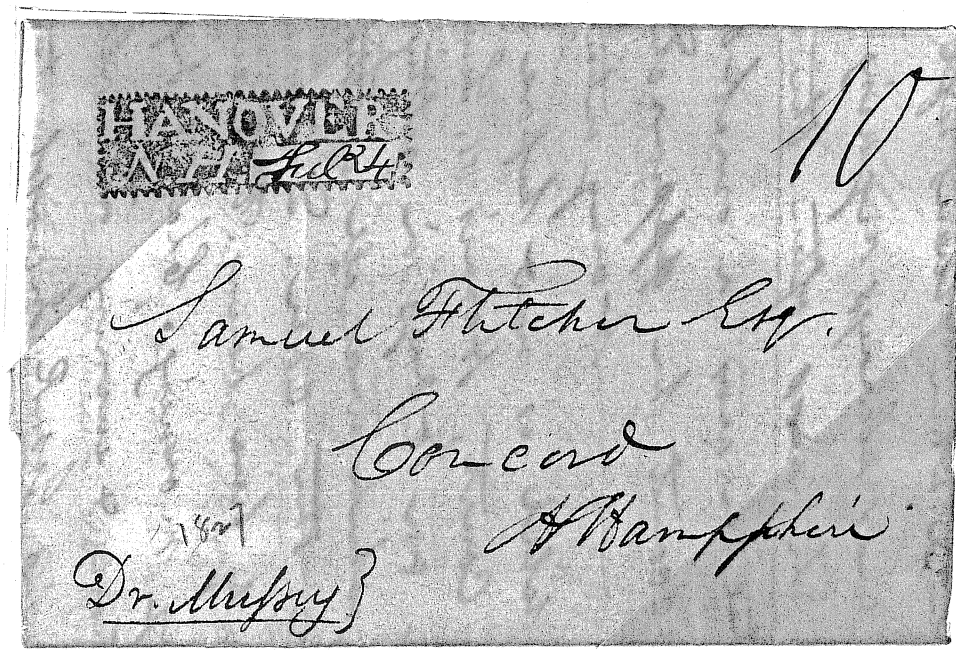 HANOVER
N. H. Jul 24
10
Samuel Fletcher Esq.
Concord
N Hampshire
1827
Dr. Mussey}